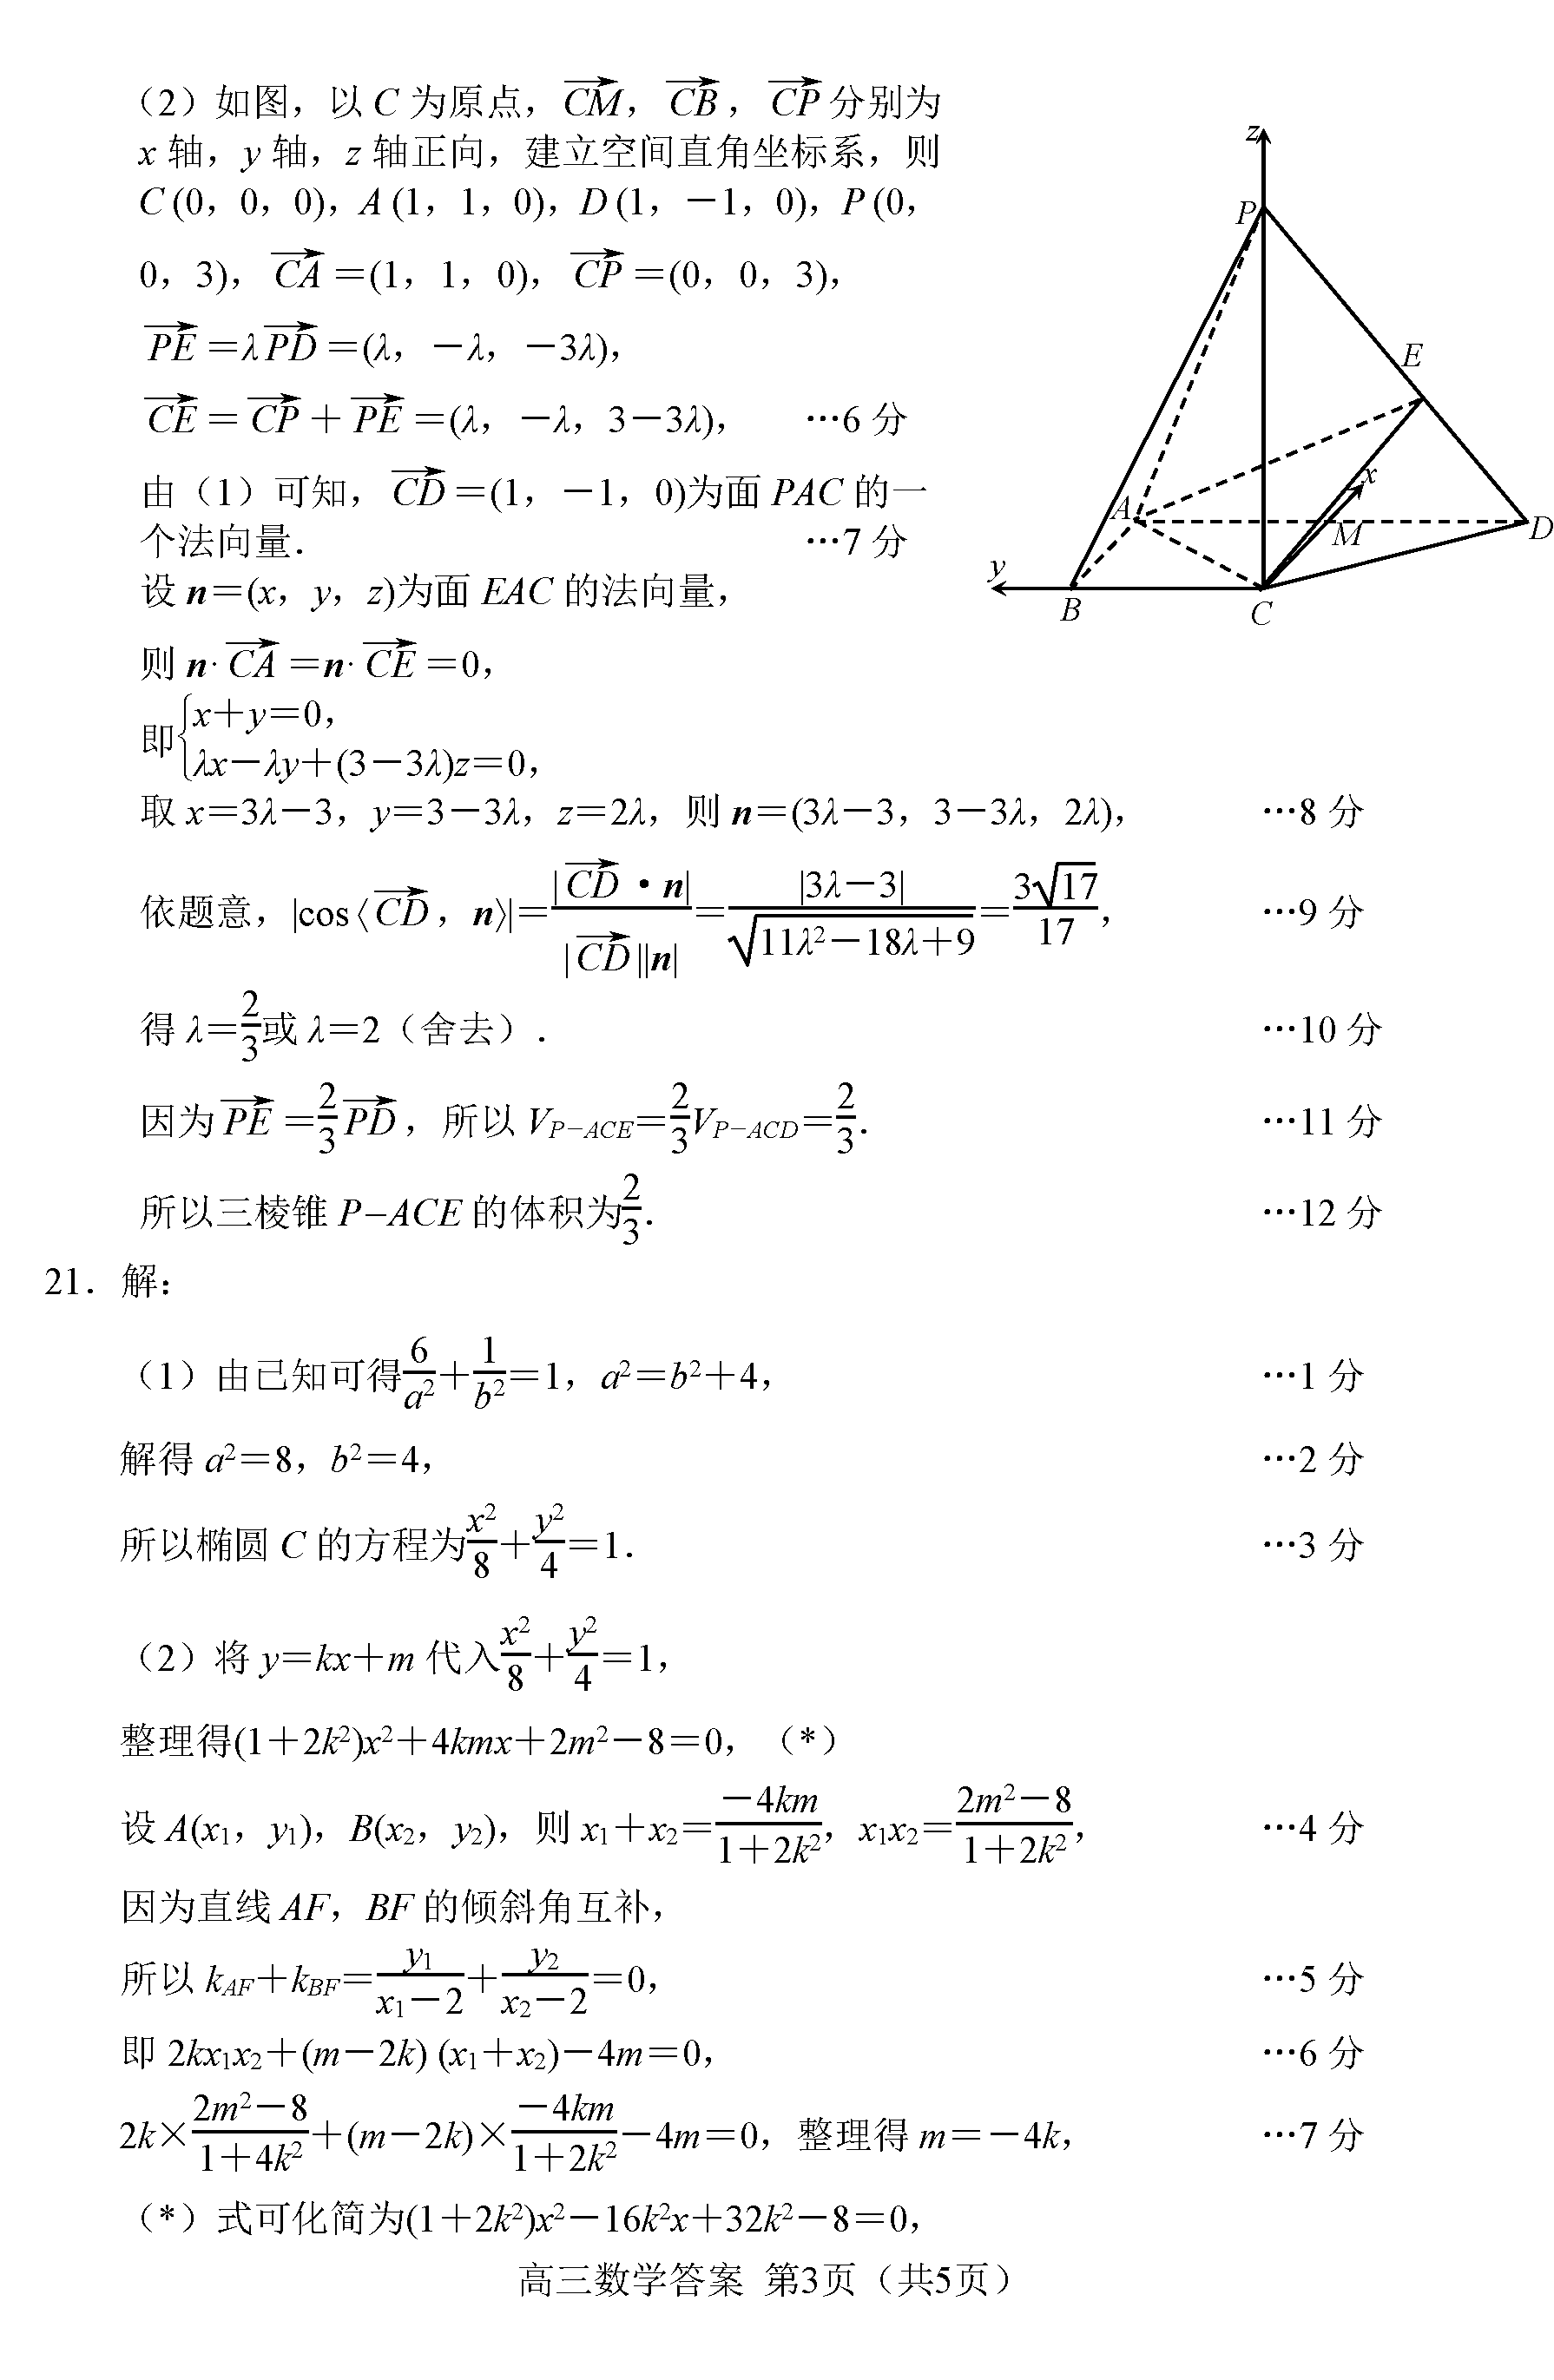 （2）如图，以 C 为原点，\overrightarrow{CM}，\overrightarrow{CB}，\overrightarrow{CP}分别为
x 轴，y 轴，z 轴正向，建立空间直角坐标系，则
C (0，0，0)，A (1，1，0)，D (1，－1，0)，P (0，
0，3)，\overrightarrow{CA}＝(1，1，0)，\overrightarrow{CP}＝(0，0，3)，
\overrightarrow{PE}＝λ\overrightarrow{PD}＝(λ，－λ，－3λ)，
\overrightarrow{CE}＝\overrightarrow{CP}＋\overrightarrow{PE}＝(λ，－λ，3－3λ)， …6 分
由（1）可知，\overrightarrow{CD}＝(1，－1，0)为面 PAC 的一
个法向量． …7 分
设 n＝(x，y，z)为面 EAC 的法向量，
则 n·\overrightarrow{CA}＝n·\overrightarrow{CE}＝0，
即\begin{cases}x＋y＝0，\\ λx－λy＋(3－3λ)z＝0，\end{cases}
取 x＝3λ－3，y＝3－3λ，z＝2λ，则 n＝(3λ－3，3－3λ，2λ)， …8 分
依题意，|cos〈\overrightarrow{CD}，n〉|＝\frac{|\overrightarrow{CD}·n|}{|\overrightarrow{CD}||n|}＝\frac{|3λ－3|}{\sqrt{11λ^2－18λ＋9}}＝\frac{3\sqrt{17}}{17}， …9 分
得 λ＝\frac{2}{3}或 λ＝2（舍去）． …10 分
因为\overrightarrow{PE}＝\frac{2}{3}\overrightarrow{PD}，所以 V_{P－ACE}＝\frac{2}{3}V_{P－ACD}＝\frac{2}{3}． …11 分
所以三棱锥 P–ACE 的体积为\frac{2}{3}． …12 分
z
P
E
x
A
M
D
y
B
C
21．解：
（1）由已知可得\frac{6}{a^2}＋\frac{1}{b^2}＝1，a^2＝b^2＋4， …1 分
解得 a^2＝8，b^2＝4， …2 分
所以椭圆 C 的方程为\frac{x^2}{8}＋\frac{y^2}{4}＝1． …3 分
（2）将 y＝kx＋m 代入\frac{x^2}{8}＋\frac{y^2}{4}＝1，
整理得(1＋2k^2)x^2＋4kmx＋2m^2－8＝0，（*）
设 A(x_1，y_1)，B(x_2，y_2)，则 x_1＋x_2＝\frac{－4km}{1＋2k^2}，x_1x_2＝\frac{2m^2－8}{1＋2k^2}， …4 分
因为直线 AF，BF 的倾斜角互补，
所以 k_{AF}＋k_{BF}＝\frac{y_1}{x_1－2}＋\frac{y_2}{x_2－2}＝0， …5 分
即 2kx_1x_2＋(m－2k) (x_1＋x_2)－4m＝0， …6 分
2k×\frac{2m^2－8}{1＋4k^2}＋(m－2k)×\frac{－4km}{1＋2k^2}－4m＝0，整理得 m＝－4k， …7 分
（*）式可化简为(1＋2k^2)x^2－16k^2x＋32k^2－8＝0，
高三数学答案 第3页（共5页）